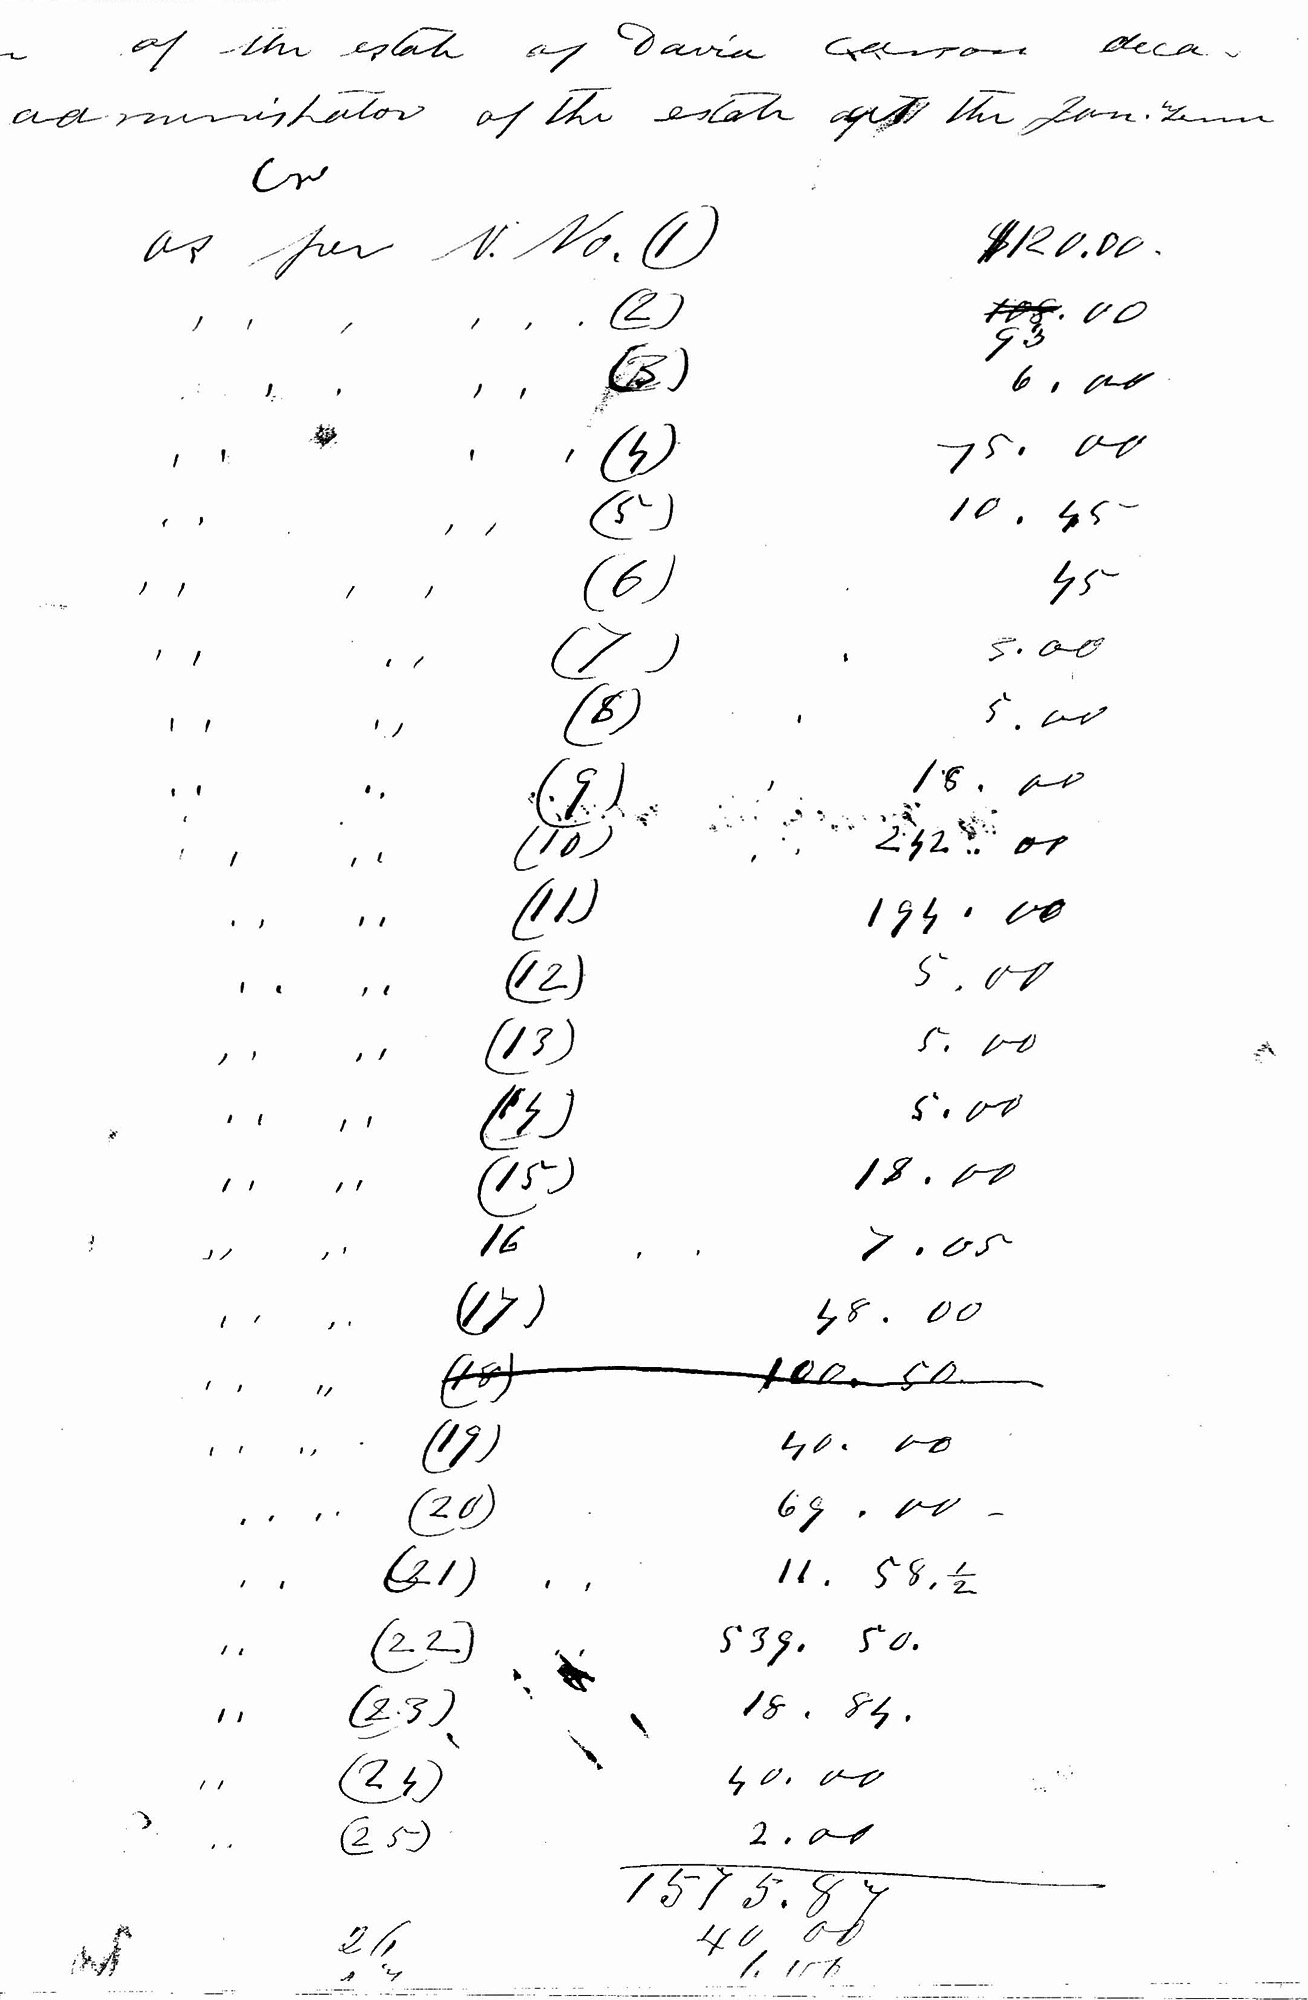 of the estate of David Carson decd.
administrator of the estate at the Jan. Term
Cr
as per V. No. (1) $120.00.
" " " (2) 108.00
93
" " " (3) 6.00
" " " (4) 75.00
" " " (5) 10.45
" " " (6) 45
" " (7) 5.00
" " (8) 5.00
" " (9) 18.00
" " (10) 242.00
" " (11) 194.00
" " (12) 5.00
" " (13) 5.00
" " (14) 5.00
" " (15) 18.00
" " 16 7.05
" " (17) 48.00
" " (18) 100.50
" " (19) 40.00
" " (20) 69.00
" " (21) " 11.58.½
" (22) " 539.50.
" (23) 18.84.
" (24) 40.00
" (25) 2.00
1575.87
26 40 00